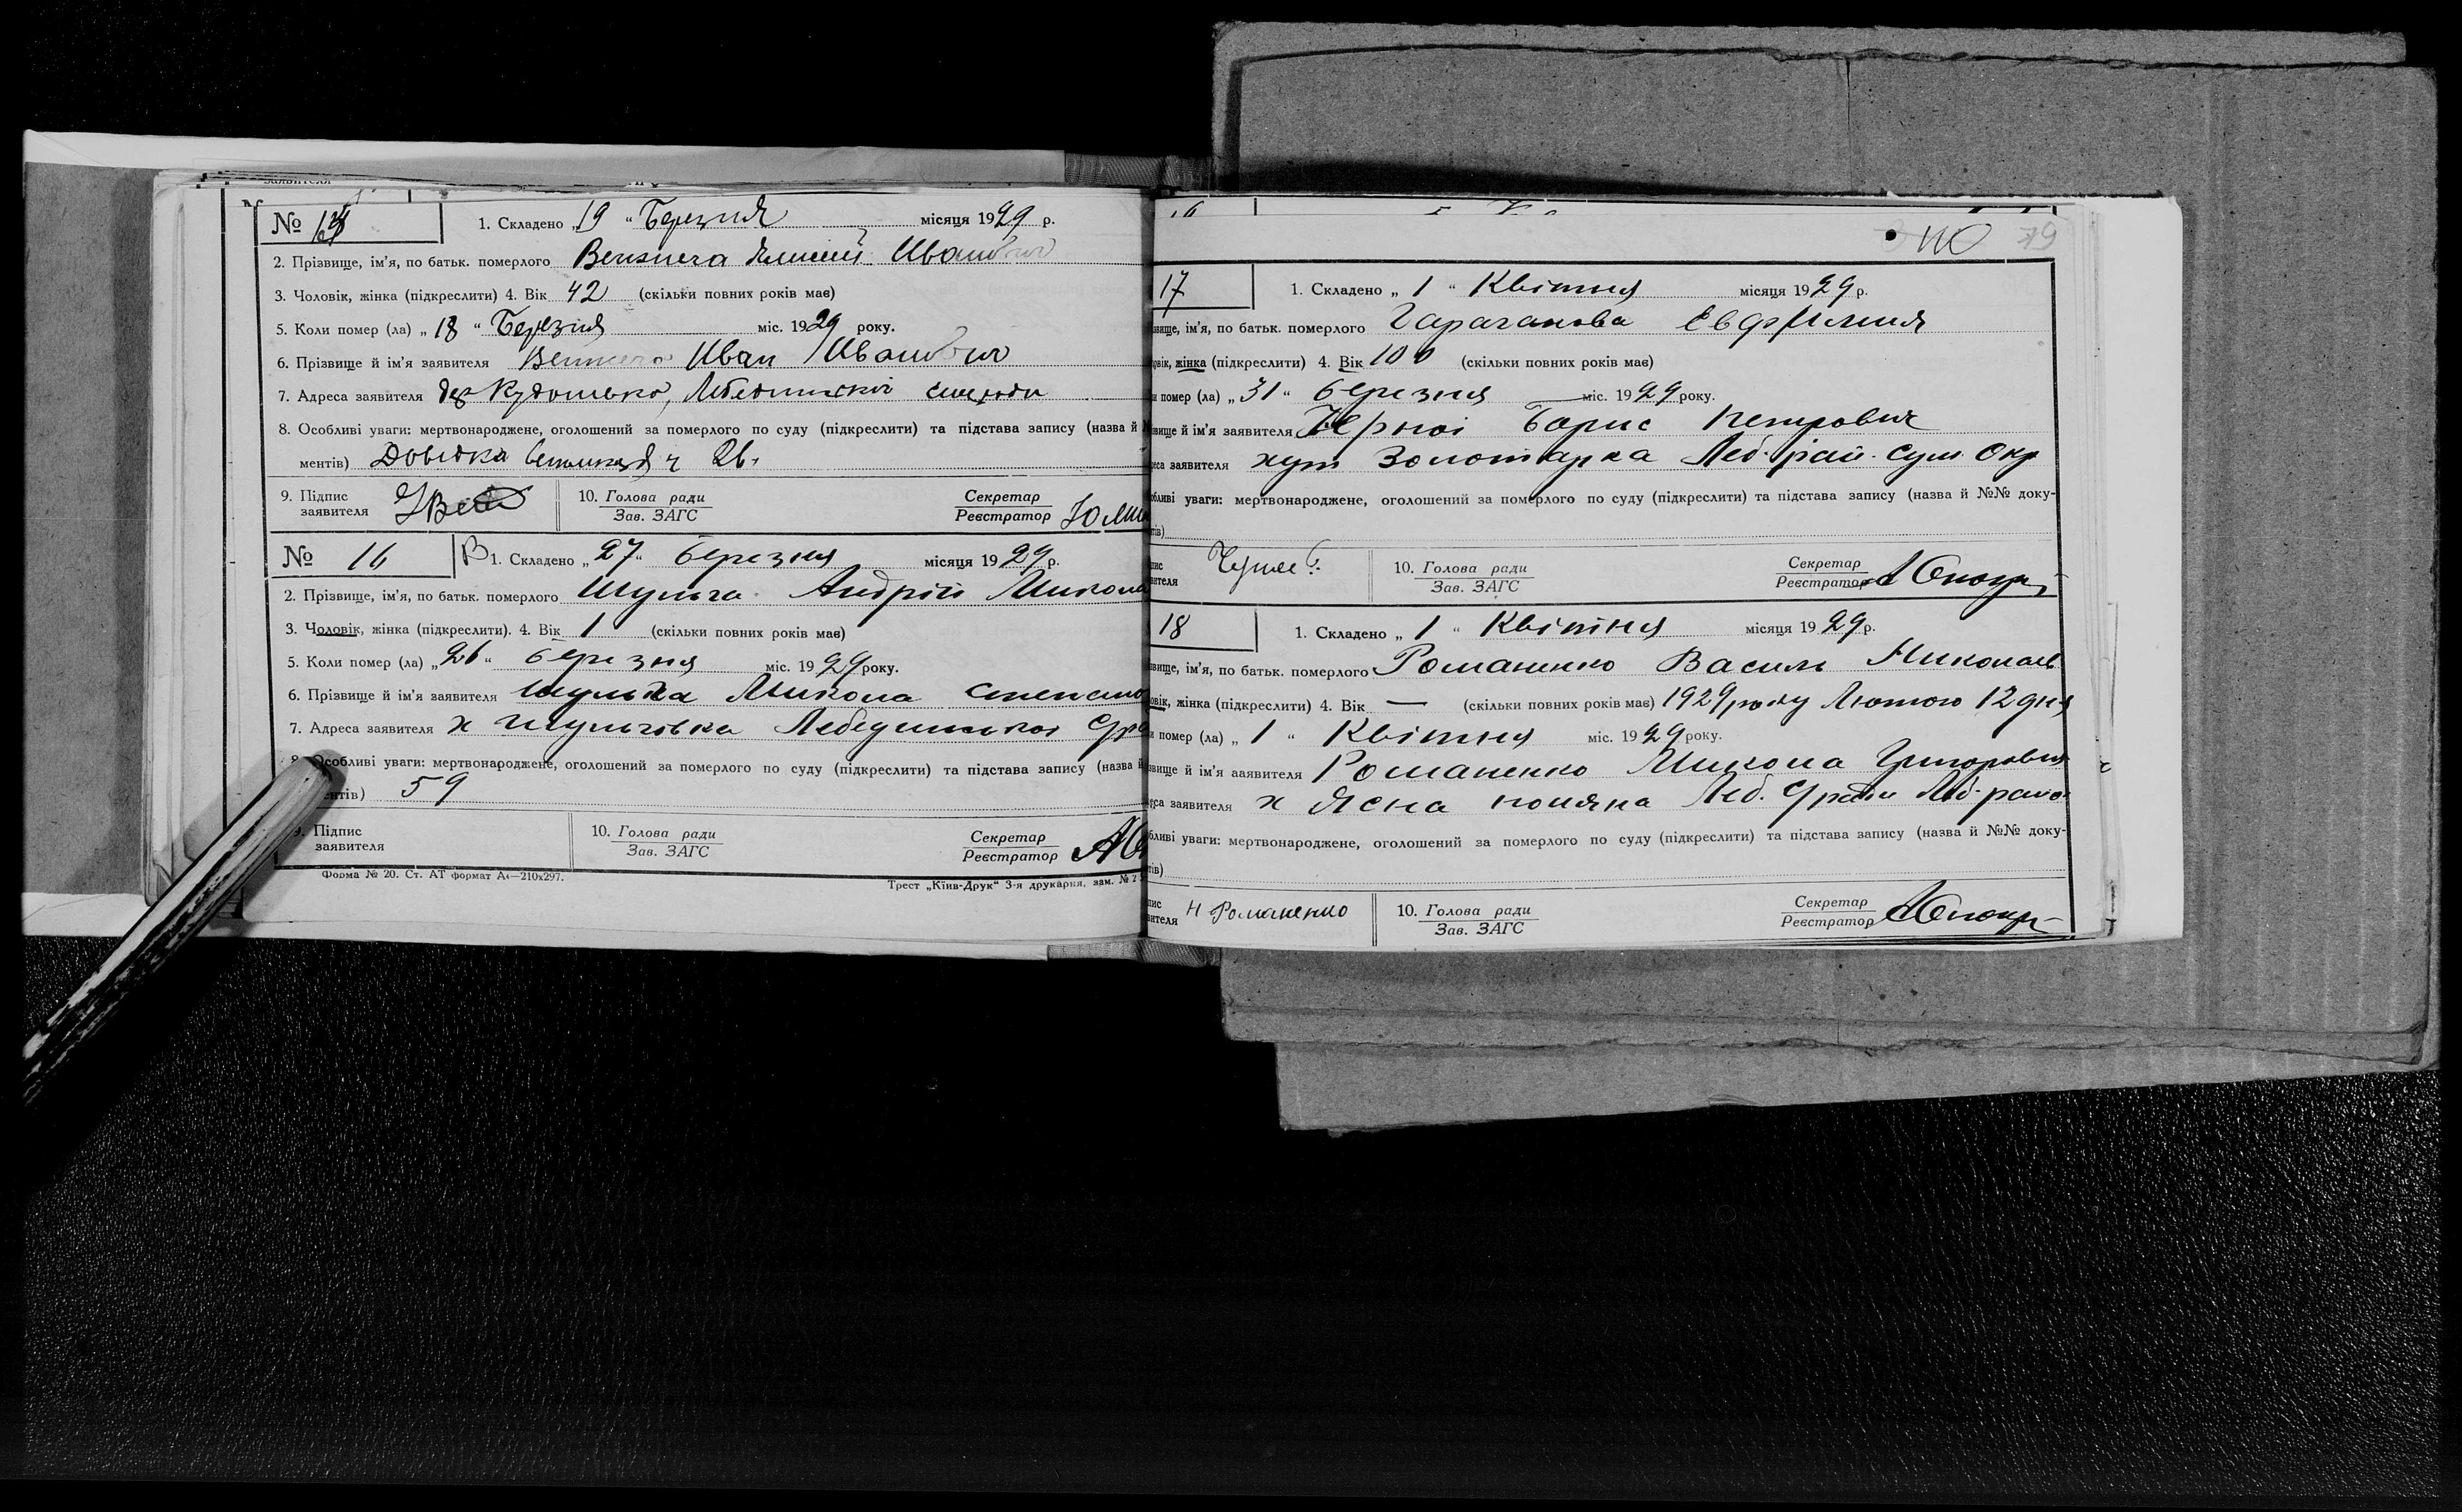 № 15
1. Складено „19“ Березня місяця 1929 р.
2. Прізвище, ім'я, по батьк. померлого Иванович
3. Чоловік, жінка (підкреслити) 4. Вік 42 (скільки повних років має)
5. Коли помер (ла) „18“ Березня міс. 1929 року.
6. Прізвище й ім'я заявителя Иван Иванович
7. Адреса заявителя
8. Особливі уваги: мертвонароджене, оголошений за померлого по суду (підкреслити) та підстава запису (назва й
ментів) Довідка ч 26.
9. Підпис заявителя
10. Голова ради Зав. ЗАГС
Секретар Реєстратор
№ 16
1. Складено „27“ березня місяця 1929 р.
2. Прізвище, ім'я, по батьк. померлого Шульга Андрій Микола
3. Чоловік, жінка (підкреслити). 4. Вік 1 (скільки повних років має)
5. Коли помер (ла) „26“ березня міс. 1929 року.
6. Прізвище й ім'я заявителя Шульга Микола Степано
7. Адреса заявителя х Шульговка Лебединської
8. Особливі уваги: мертвонароджене, оголошений за померлого по суду (підкреслити) та підстава запису (назва й
ментів) 59
9. Підпис заявителя
10. Голова ради Зав. ЗАГС
Секретар Реєстратор
Форма № 20. Ст. АТ формат А4—210х297.
Трест „Київ-Друк“ 3-я друкарня, зам. №
79
17
1. Складено „1“ Квітня місяця 1929 р.
звище, ім'я, по батьк. померлого
овік, жінка (підкреслити) 4. Вік 100 (скільки повних років має)
и помер (ла) „31“ березня міс. 1929 року.
звище й ім'я заявителя Борис Петрович
еса заявителя хут Золотарка Леб. рай. Сум. Окр
обливі уваги: мертвонароджене, оголошений за померлого по суду (підкреслити) та підстава запису (назва й №№ доку-
тів)
пис вителя
10. Голова ради Зав. ЗАГС
Секретар Реєстратор
18
1. Складено „1“ Квітня місяця 1929 р.
звище, ім'я, по батьк. померлого Романенко Василь Миколаєв
овік, жінка (підкреслити) 4. Вік — (скільки повних років має) 1929 року Лютого 12 дня
и помер (ла) „1“ Квітня міс. 1929 року.
звище й ім'я заявителя Романенко Микола Григорович
еса заявителя х Ясна поляна Леб.
бливі уваги: мертвонароджене, оголошений за померлого по суду (підкреслити) та підстава запису (назва й №№ доку-
тів)
пис вителя Н Романенко
10. Голова ради Зав. ЗАГС
Секретар Реєстратор